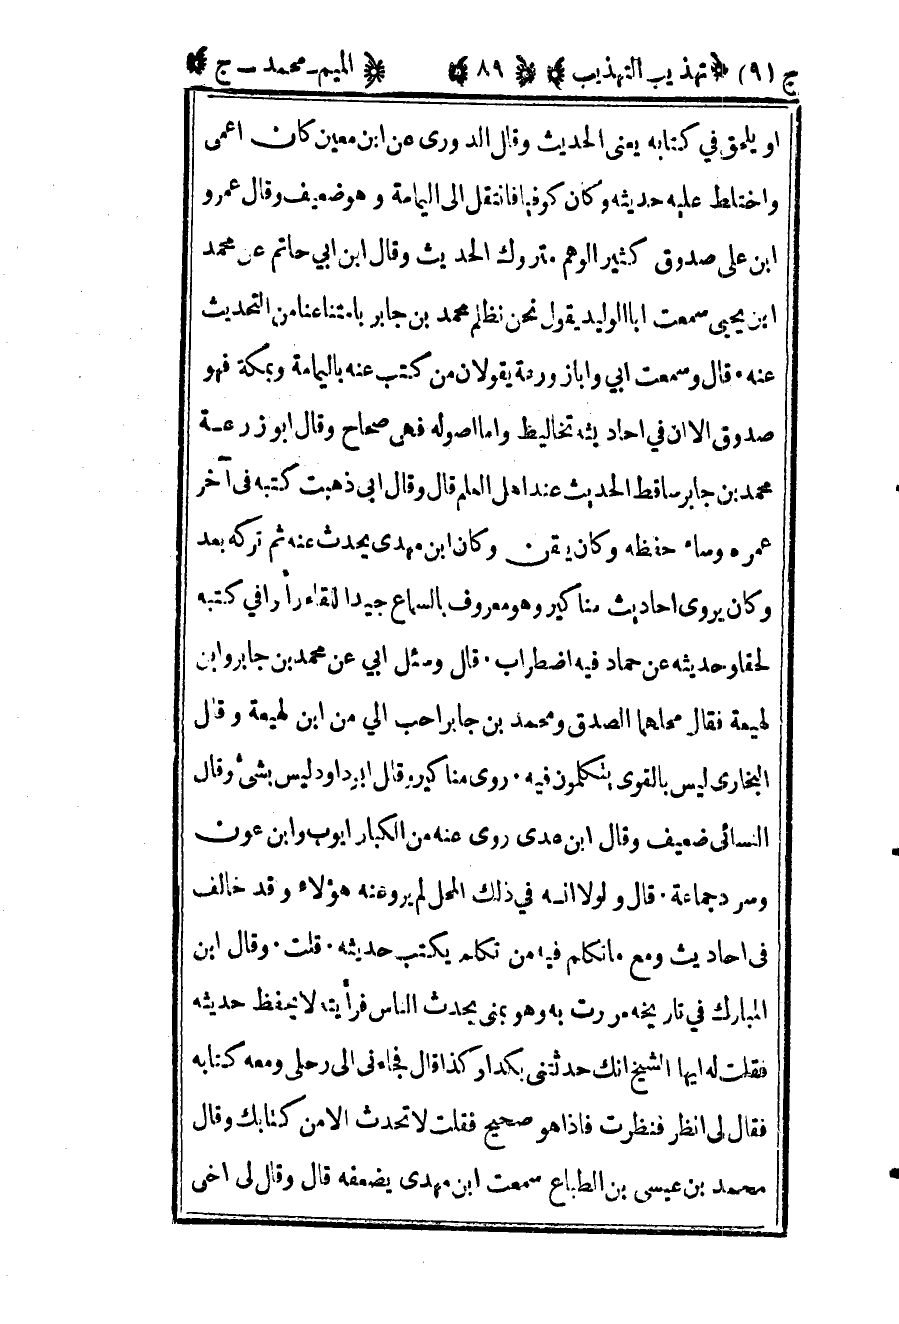 ج (٩) ﴿تهذيب التهذيب﴾ ﴿٨٩﴾ ﴿الميم ـ محمد ـ ج﴾
او يلحق في كتابه يعنى الحديث وقال الدورى عن ابن معين كان اعمى
واختلط عليه حديثه وكان كوفيا فانتقل الى اليمامة وهو ضعيف وقال عمرو
ابن على صدوق كثير الوهم متروك الحديث وقال ابن ابي حاتم عن محمد
ابن يحيى سمعت ابا الوليد يقول نحن نظلم محمد بن جابر بامتناعنا من التحديث
عنه · قال وسمعت ابي وابا زرعة يقولان من كتب عنه باليمامة وبمكة فهو
صدوق الا ان في احاديثه تخاليط واما اصوله فهى صحاح وقال ابو زرعة
محمد بن جابر ساقط الحديث عند اهل العلم قال وقال ابى ذهبت كتبه فى آخر
عمره وساء حفظه وكان يلقن وكان ابن مهدى يحدث عنه ثم تركه بعد
وكان يروى احاديث مناكير وهو معروف بالسماع جيد اللقاء رأوا في كتبه
لحقا وحديثه عن حماد فيه اضطراب · قال وسئل ابي عن محمد بن جابر وابن
لهيعة فقال محلهما الصدق ومحمد بن جابر احب الي من ابن لهيعة وقال
البخارى ليس بالقوى يتكلمون فيه · روى مناكير وقال ابو داود ليس بشئ وقال
النسائى ضعيف وقال ابن عدى روى عنه من الكبار ايوب وابن عون
وسرد جماعة · قال ولولا انه في ذلك المحل لم يرو عنه هؤلاء وقد خالف
فى احاديث ومع ما تكلم فيه من تكلم يكتب حديثه · قلت · وقال ابن
المبارك في تاريخه مررت به وهو بمنى يحدث الناس فرأيته لا يحفظ حديثه
فقلت له ايها الشيخ انك حدثتنى بكذا وكذا قال فجاءنى الى رحلى ومعه كتابه
فقال لى انظر فنظرت فاذا هو صحيح فقلت لا تحدث الا من كتابك وقال
محمد بن عيسى بن الطباع سمعت ابن مهدى يضعفه قال وقال لى اخى